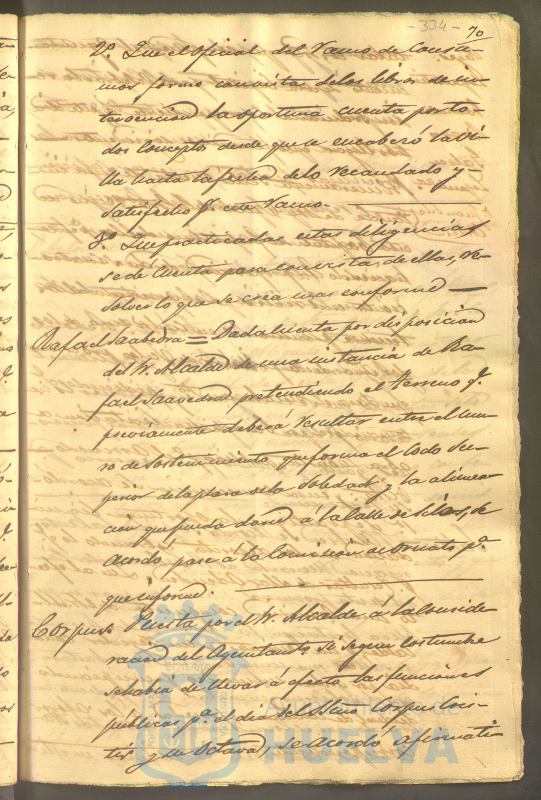 - 334 -
70
2º. Que el oficial del Ramo de Consu-
mos forme con vista de los libros de in-
tervencion la oportuna cuenta por to-
dos conceptos desde que se encabezó la Vi-
lla hasta la fecha de lo recaudado y
satisfecho pr. este Ramo.
3º. Que practicadas estas diligencias
se dé cuenta para con vista de ellas, re-
solver lo que se crea mas conforme
Rafael Saabedra = Dada cuenta por disposicion
del Sr. Alcalde de una instancia de Ra-
fael Saavedra pretendiendo el Terreno q.
previamente deberá resultar entre el mu-
ro de sostenimiento, que forma el lado su-
perior de la plaza de la Soledad y la alinea-
cion que pueda darse á la Calle de Silos, se
acordó pase á la Comision de Ornato pª.
que informe.
Corpus Puesta por el Sr. Alcalde á la conside-
racion del Ayuntamto. si segun costumbre
se habia de llevar á efecto las funciones
públicas pª. el dia del Stmo. Corpus Cris-
ti y su Octava, se acordó afirmati-
HUELVA